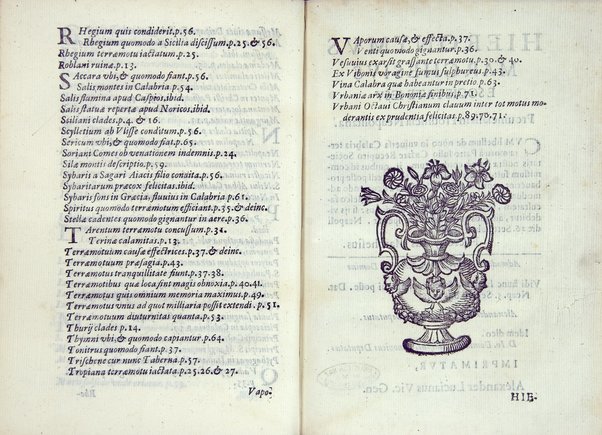 RHegium quis condiderit.p.56.
Rhegium quomodo a Sicilia discissum.p.25.& 56.
Rhegium terræmotu iactatum.p.25.
Roblani ruina.p.13.
SAccara vbi,& quomodo fiant.p.56.
Salis montes in Calabria p.54.
Salis flumina apud Caspios.ibid.
Salis statuæ repertæ apud Noricos.ibid.
Ssiliani clades.p.4. & 16.
Scylletium ab Vlisse conditum.p.56.
Sericum vbi,& quomodo fiat.p.65.
Soriani Comes ob venationem indemnis.p.24.
Silæ montis descriptio.p.59.
Sybaris a Sagari Aiacis filio constita.p.56.
Sybaritarum præcox felicitas.ibid.
Sybaris fons in Græcia,fluuius in Calabria p.61.
Spiritus quomodo terræmotum efficiant.p.35.& deinc.
Stellæ cadentes quomodo gignantur in aere.p.36.
TArentum terræmotu concussum.p.31.
Terinæ calamitas.p.13.
Terræmotuum causæ effectrices.p.37.& deinc.
Terræmotuum præsagia.p.43.
Terræmotus tranquillitate fiunt.p.37.38.
Terræmotibus quæ loca sint magis obnoxia.p.40.41.
Terræmotus quis omnium memoria maximus.p.49.
Terræmotus vnus ad quot milliaria possit extendi.p.51.
Terræmotuum diuturnitas quanta.p.53.
Thurij clades p.14.
Thynni vbi,& quomodo captantur.p.64.
Tonitrus quomodo fiant.p.37.
Trischene cur nunc Taberna.p.57.
Tropiana terræmotu iactata.p.25.26.& 27.
Vapo-
VAporum causæ,& effecta.p.37.
Venti quomodo gignantur.p.36.
Vesuuius exarsit grassante terræmotu.p.30.& 40.
Ex Vibonis voragine fumus sulphureus.p.43.
Vina Calabra quæ habeantur in pretio p.63.
Vrbania arx in Bononiæ finibus.p.71.
Vrbani Octaui Christianum clauum inter tot motus mo-
derantis ex prudentia felicitas p.89.70.71.
HIE-